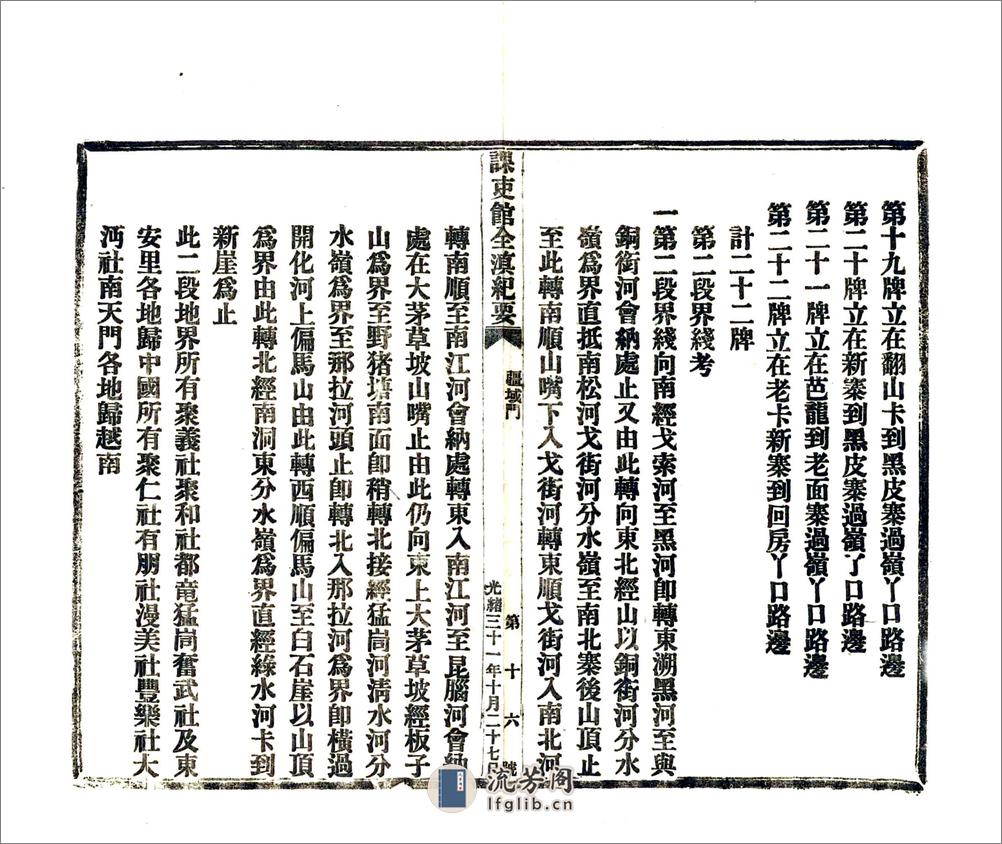 第十九牌立在翻山卡到黑皮寨過嶺丫口路邊
第二十牌立在新寨到黑皮寨過嶺了口路邊
第二十一牌立在芭龍到老面寨過嶺丫口路邊
第二十二牌立在老卡新寨到回房丫口路邊
計二十二牌
第二段界綫考
一第二段界綫向南經戈索河至黑河卽轉東溯黑河至與
銅街河會納處止又由此轉向東北經山以銅街河分水
嶺爲界直抵南松河戈街河分水嶺至南北寨後山頂止
至此轉南順山嘴下入戈街河轉東順戈街河入南北河
課吏館全滇紀要
疆域門
第十六號
光緒三十一年十月二十七日
轉南順至南江河會納處轉東入南江河至昆腦河會納
處在大茅草坡山嘴止由此仍向東上大茅草坡經板子
山爲界至野猪塘南面卽稍轉北接經猛峝河淸水河分
水嶺爲界至那拉河頭止卽轉北入那拉河爲界卽橫過
開化河上偏馬山由此轉西順偏馬山至白石崖以山頂
爲界由此轉北經南洞東分水嶺爲界直經綠水河卡到
新崖爲止
此二段地界所有聚義社聚和社都竜猛峝奮武社及東
安里各地歸中國所有聚仁社有朋社漫美社豐樂社大
沔社南天門各地歸越南
流芳阁
lfglib.cn